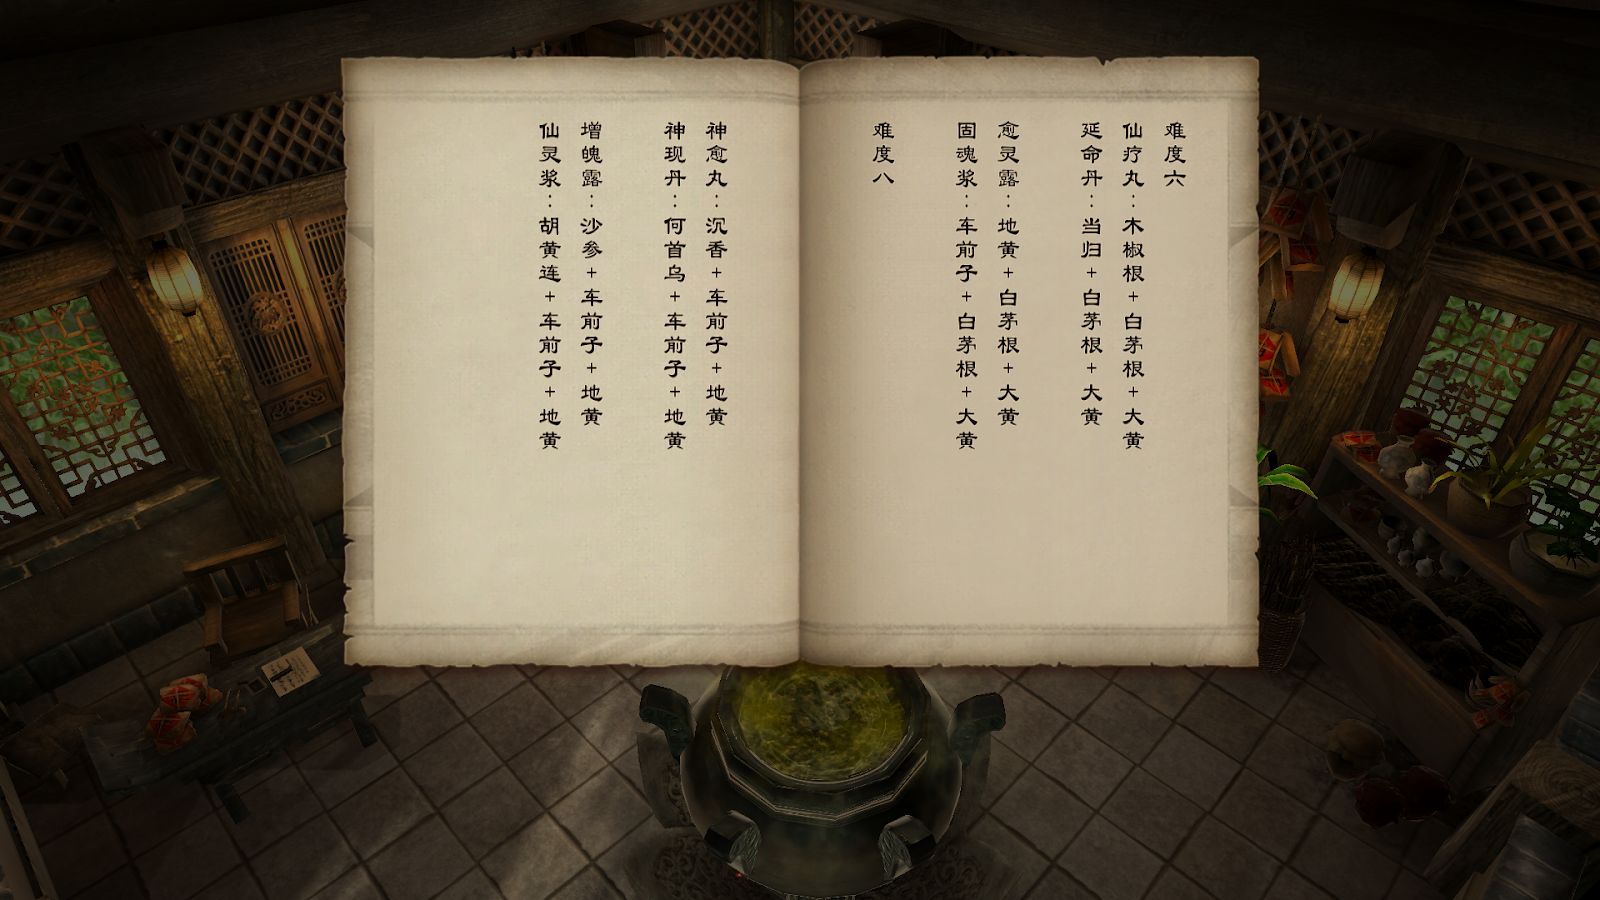 难度六
仙疗丸：木椒根+白茅根+大黄
延命丹：当归+白茅根+大黄
愈灵露：地黄+白茅根+大黄
固魂浆：车前子+白茅根+大黄
难度八
神愈丸：沉香+车前子+地黄
神现丹：何首乌+车前子+地黄
增魄露：沙参+车前子+地黄
仙灵浆：胡黄连+车前子+地黄